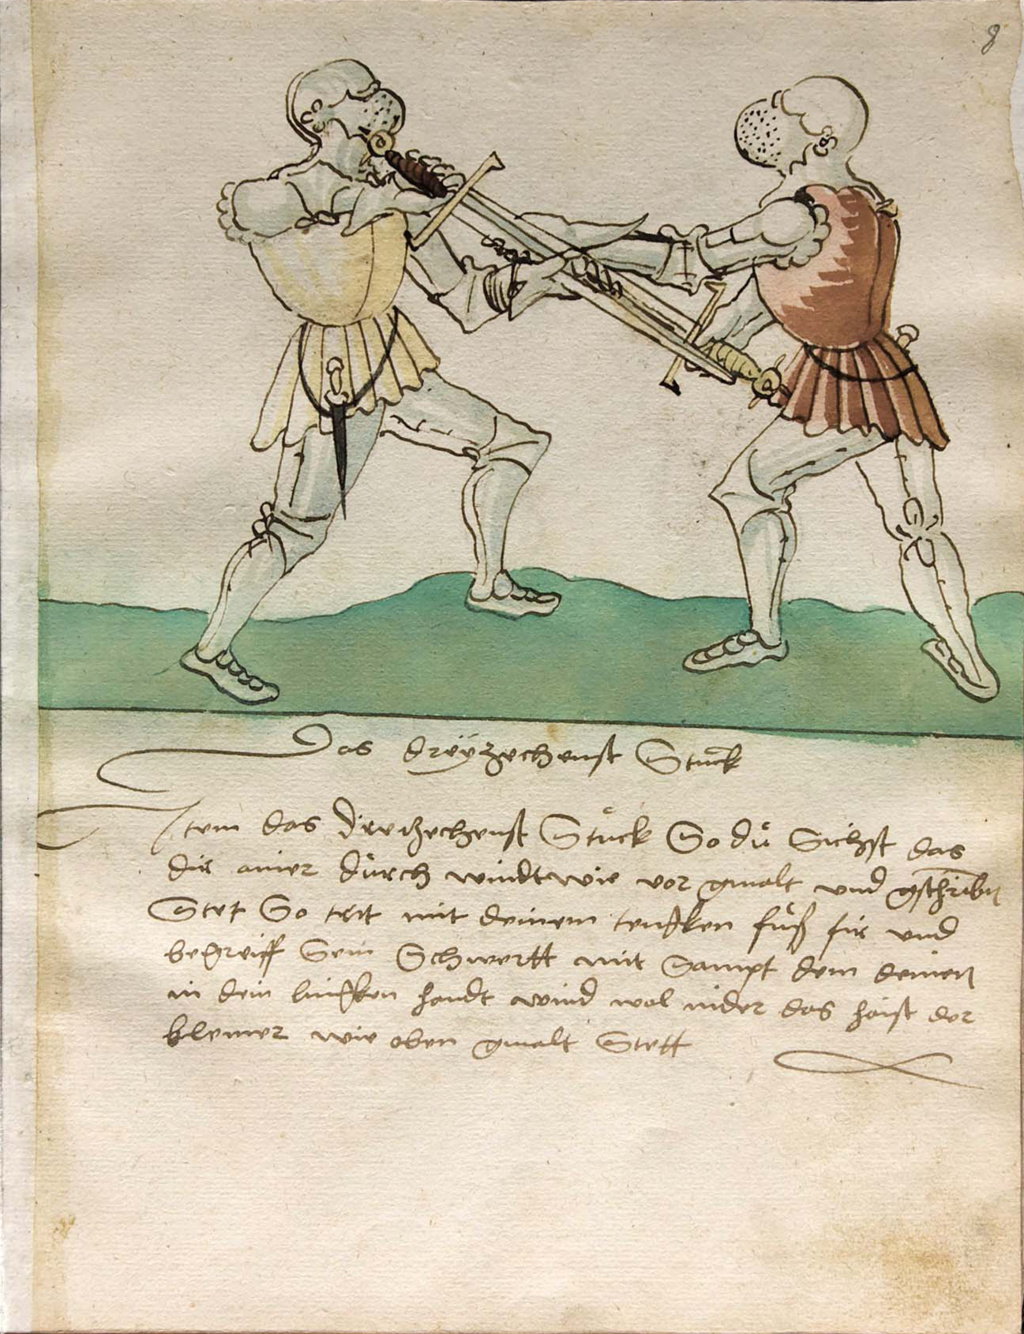 8
Das dreÿzechenst Stuck
Item das dreizechenst Stuck So dü Sichst das
dir ainer dürch windt wie vor gmalt und gschriben
Stet So trit mit deinem lenken füß für und
begreiff Sein Schwertt mit Sampt dem deinen
in dein linken handt wind wol nider das haist der
klemer wie oben gmalt Stett